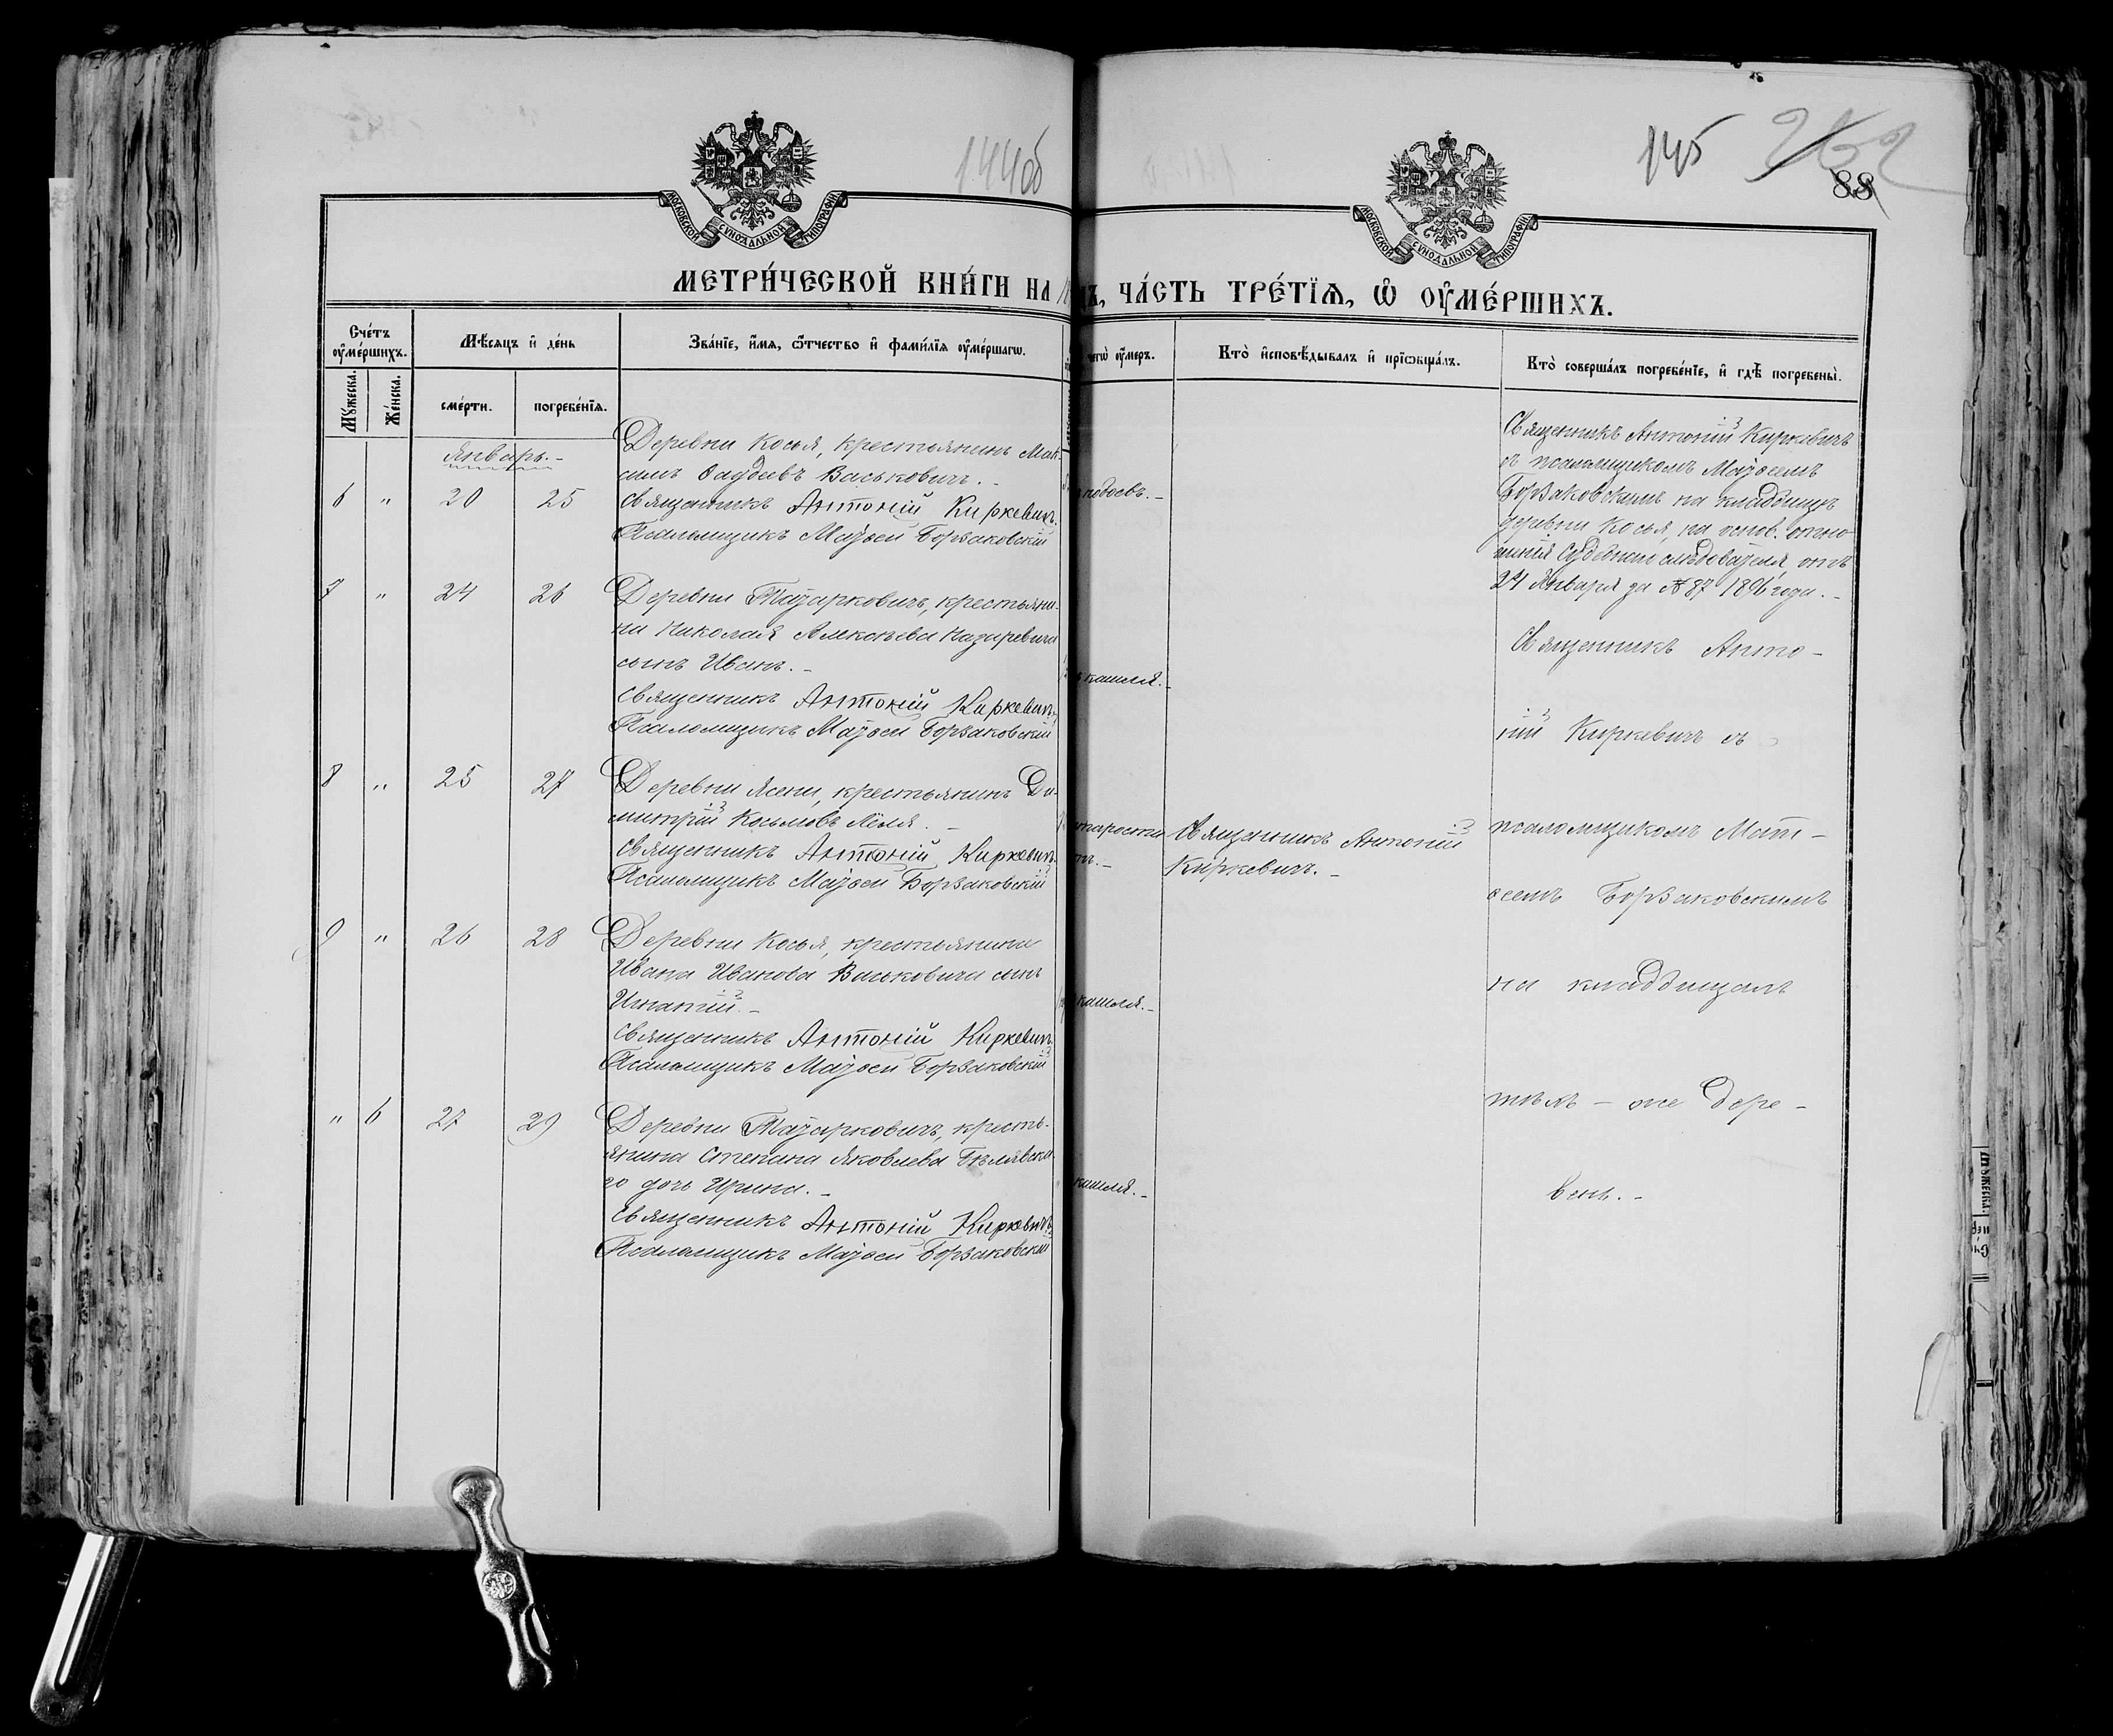 144об
145 262
88
МОСКОВСКОЙ СѴНОДАЛЬНОЙ ТИПОГРАФІИ
МОСКОВСКОЙ СѴНОДАЛЬНОЙ ТИПОГРАФІИ
МЕТРИ́ЧЕСКОЙ КНИ́ГИ НА
, ЧА́СТЬ ТРЕ́ТЇѦ, Ѡ҆ ОУ҆МЕ́РШИХЪ.
Сче́тъ оу҆ме́ршихъ.
Мꙋ́жеска.
Же́нска.
Мѣ́сѧцъ и҆ де́нь
сме́рти.
погребе́нїѧ.
Зва́нїе, и҆́мѧ, ѻ҆́тчество и҆ фами́лїѧ оу҆ме́ршагѡ.
чегѡ̀ оу҆́меръ.
Кто̀ и҆сповѣ́дывалъ и҆ прїѡбща́лъ.
Кто̀ соверша́лъ погребе́нїе, и҆ гдѣ̀ погребены̀.
Январь.-
6 " 20 25
Деревни Косья, крестьянинъ Мак-
симъ Фаддеевъ Васьковичъ.-
Священникъ Антоній Киркевичъ.
Псаломщикъ Матѳей Борзаковскій
Священникъ Антоній Киркевичъ
съ псаломщикомъ Матѳеемъ
Борзаковскимъ на кладбищѣ
деревни Косья, на основ. отно
шенія Судебнаго слѣдователя, отъ
24 Января за № 87 1896 года.-
7 " 24 26
крестьяни-
на Николая Алексѣева Назаревича
сынъ Иванъ.-
Священникъ Антоній Киркевичъ
Псаломщикъ Матѳей Борзаковскій
кашля.-
Священникъ Анто-
ній Киркевичъ съ
8 " 25 27
Деревни Ясени, крестьянинъ Ди-
митрій Косьмовъ
Священникъ Антоній Киркевичъ
Псаломщикъ Матѳей Борзаковскій
старости
Священникъ Антоній
Киркевичъ.-
псаломщикомъ Мат-
ѳеемъ Борзаковскимъ
9 " 26 28
Деревни Косья, крестьянина
Ивана Иванова Васьковича сынъ
Игнатій.-
Священникъ Антоній Киркевичъ
Псаломщикъ Матѳей Борзаковскій
кашля.-
на кладбищахъ
" 6 27 29
кресть-
янина Степана Яковлева Бѣлявска
го дочь Ирина.-
Священникъ Антоній Киркевичъ
Псаломщикъ Матѳей Борзаковскій
кашля.-
тѣхъ-же дере-
вень.-